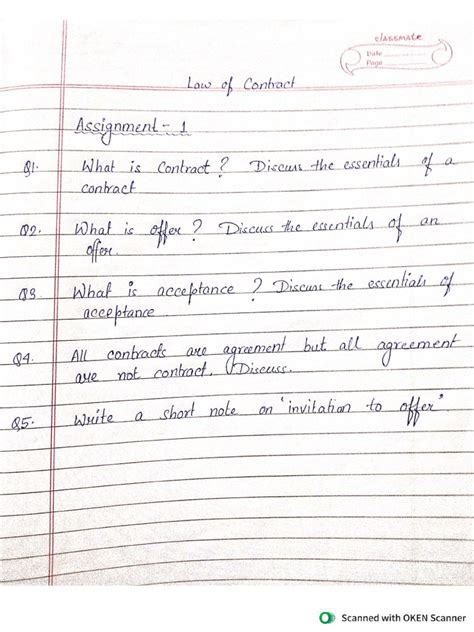 classmate
Date
Page
Law of Contract
Assignment - 1
Q1. What is Contract? Discuss the essentials of a
contract
Q2. What is offer? Discuss the essentials of an
offer.
Q3 What is acceptance? Discuss the essentials of
acceptance
Q4. All contracts are agreement but all agreement
are not contract. Discuss.
Q5. Write a short note on 'invitation to offer".
Scanned with OKEN Scanner